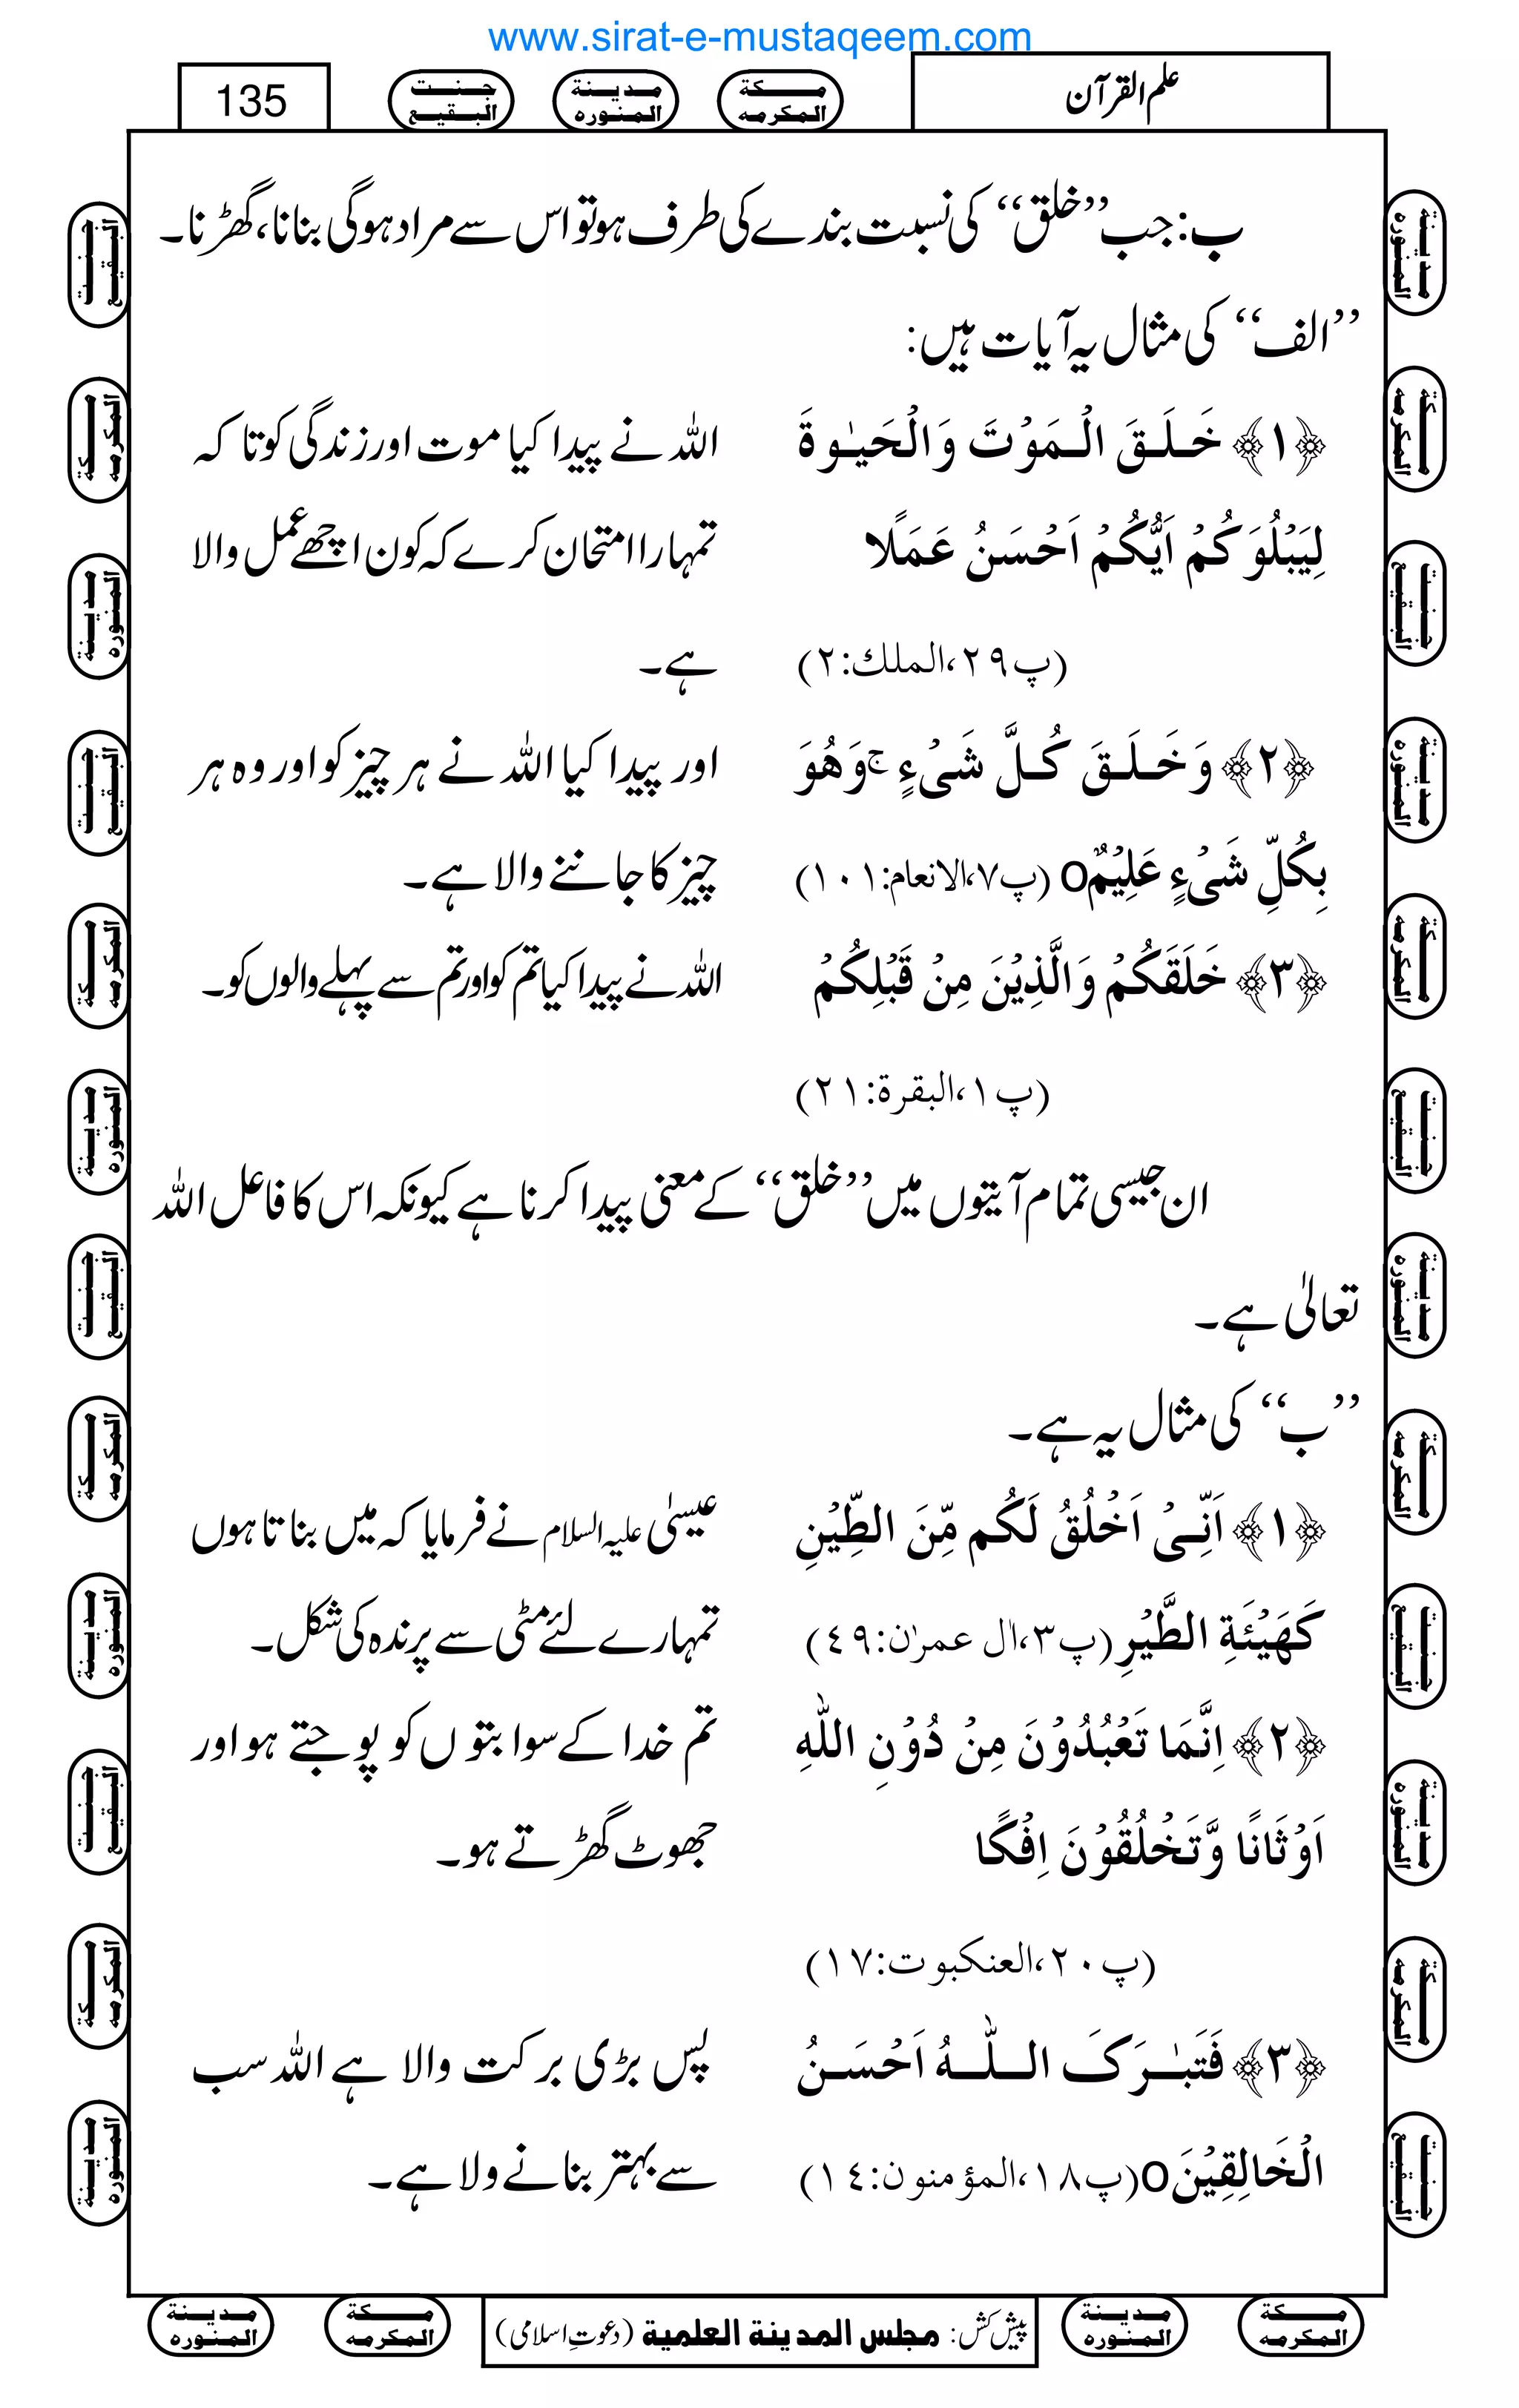 www.sirat-e-mustaqeem.com
علم القرآن
مكة المكرمه
مدينة المنوره
جنت البقيع
135
ب: جب ’’خلق‘‘ کی نسبت بندے کی طرف ہو تو اس سے مراد ہوگی بنانا، گھڑنا۔
’’الف‘‘ کی مثال یہ آیات ہیں:
﴿۱﴾ خَلَقَ الْمَوْتَ وَالْحَیٰوةَ
اللہ نے پیدا کیا موت اور زندگی کو تا کہ
لِیَبْلُوَكُمْ اَیُّكُمْ اَحْسَنُ عَمَلًا
تمہارا امتحان کرے کہ کون اچھے عمل والا
(پ۲۹،الملك:۲)
ہے۔
﴿۲﴾ وَخَلَقَ كُلَّ شَیْءٍ ۚ وَهُوَ
اور پیدا کیا اللہ نے ہر چیز کو اور وہ ہر
بِكُلِّ شَیْءٍ عَلِیْمٌ O (پ۷،الانعام:۱۰۱)
چیز کا جاننے والا ہے۔
﴿۳﴾ خَلَقَكُمْ وَالَّذِیْنَ مِنْ قَبْلِكُمْ
اللہ نے پیدا کیا تم کو اور تم سے پہلے والوں کو۔
(پ۱،البقرة:۲۱)
ان جیسی تمام آیتوں میں ’’خلق‘‘ کے معنی پیدا کرنا ہے کیونکہ اس کا فاعل اللہ
تعالٰی ہے۔
’’ب‘‘ کی مثال یہ ہے۔
﴿۱﴾ اَنِّیْ اَخْلُقُ لَكُم مِّنَ الطِّیْنِ
عیسیٰ علیہ السلام نے فرمایا کہ میں بناتا ہوں
كَهَیْئَةِ الطَّیْرِ (پ۳،اٰل عمرٰن:٤۹)
تمہارے لئے مٹی سے پرندہ کی شکل۔
﴿۲﴾ اِنَّمَا تَعْبُدُوْنَ مِنْ دُوْنِ اللّٰهِ
تم خدا کے سوا بتوں کو پوجتے ہو اور
اَوْثَانًا وَّتَخْلُقُوْنَ اِفْكًا
جھوٹ گھڑتے ہو۔
(پ۲۰،العنكبوت:۱۷)
﴿۳﴾ فَتَبٰرَكَ اللّٰهُ اَحْسَنُ
پس بڑی برکت والا ہے اللہ سب
الْخَالِقِیْنَ O (پ۱۸،المؤمنون:۱٤)
سے بہتر بنانے ولا ہے۔
مكة المكرمه
مدينة المنوره
پیش کش: مجلس المدينة العلمية (دعوتِ اسلامی)
مكة المكرمه
مدينة المنوره